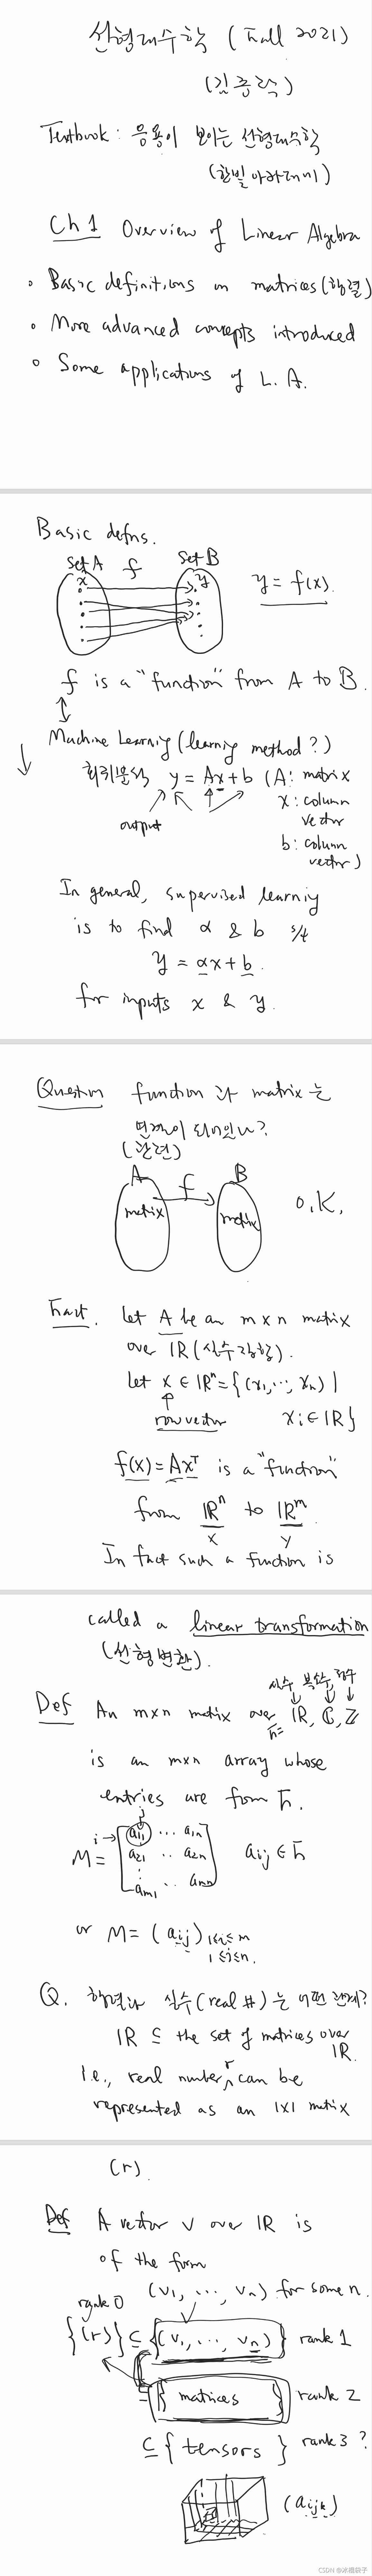 선형대수학 (Fall 2021)
(김종락)
Textbook: 응용이 보이는 선형대수학
(한빛아카데미)
Ch 1 Overview of Linear Algebra
• Basic definitions on matrices(행렬)
• More advanced concepts introduced
• Some applications of L.A.
Basic defns.
Set A f Set B
x y
y = f(x).
f is a "function" from A to B.
Machine Learnig (learnig method?)
회귀분석 y = Ax+b (A: matrix
x: column
vector
output
b: column
vector)
In general, supervised learnig
is to find α & b s/t
y = αx+b.
for inputs x & y.
Question function 과 matrix는
(관련)
A f B
matrix matrix
O.K.
Fact. Let A be an m×n matrix
over ℝ (실수집합).
Let x ∈ ℝⁿ = {(x₁, ⋯, xₙ) |
row vector xᵢ ∈ ℝ}
f(x) = Axᵀ is a "function"
from ℝⁿ to ℝᵐ.
x y
In fact such a function is
called a linear transformation
(선형변환).
실수 복소수, 정수
Def An m×n matrix over F= ℝ, ℂ, ℤ
is an m×n array whose
entries are from F.
j
i → a₁₁ ⋯ a₁ₙ
M = a₂₁ ‥ a₂ₙ aᵢⱼ ∈ F
⋮
aₘ₁ ‥ aₘₙ
or M = (aᵢⱼ) 1≤i≤m
1≤j≤n.
Q. 행렬과 실수(real #)는 어떤 관계?
ℝ ⊆ the set of matrices over
ℝ.
i.e., real number r can be
represented as an 1×1 matrix
(r).
Def A vector v over ℝ is
of the form
(v₁, ⋯, vₙ) for some n.
rank 0
{(r)} ⊆ {(v₁, ⋯, vₙ)} rank 1
⊆ { matrices } rank 2
⊆ { tensors } rank 3 ?
(aᵢⱼₖ)
CSDN @冰糖袋子